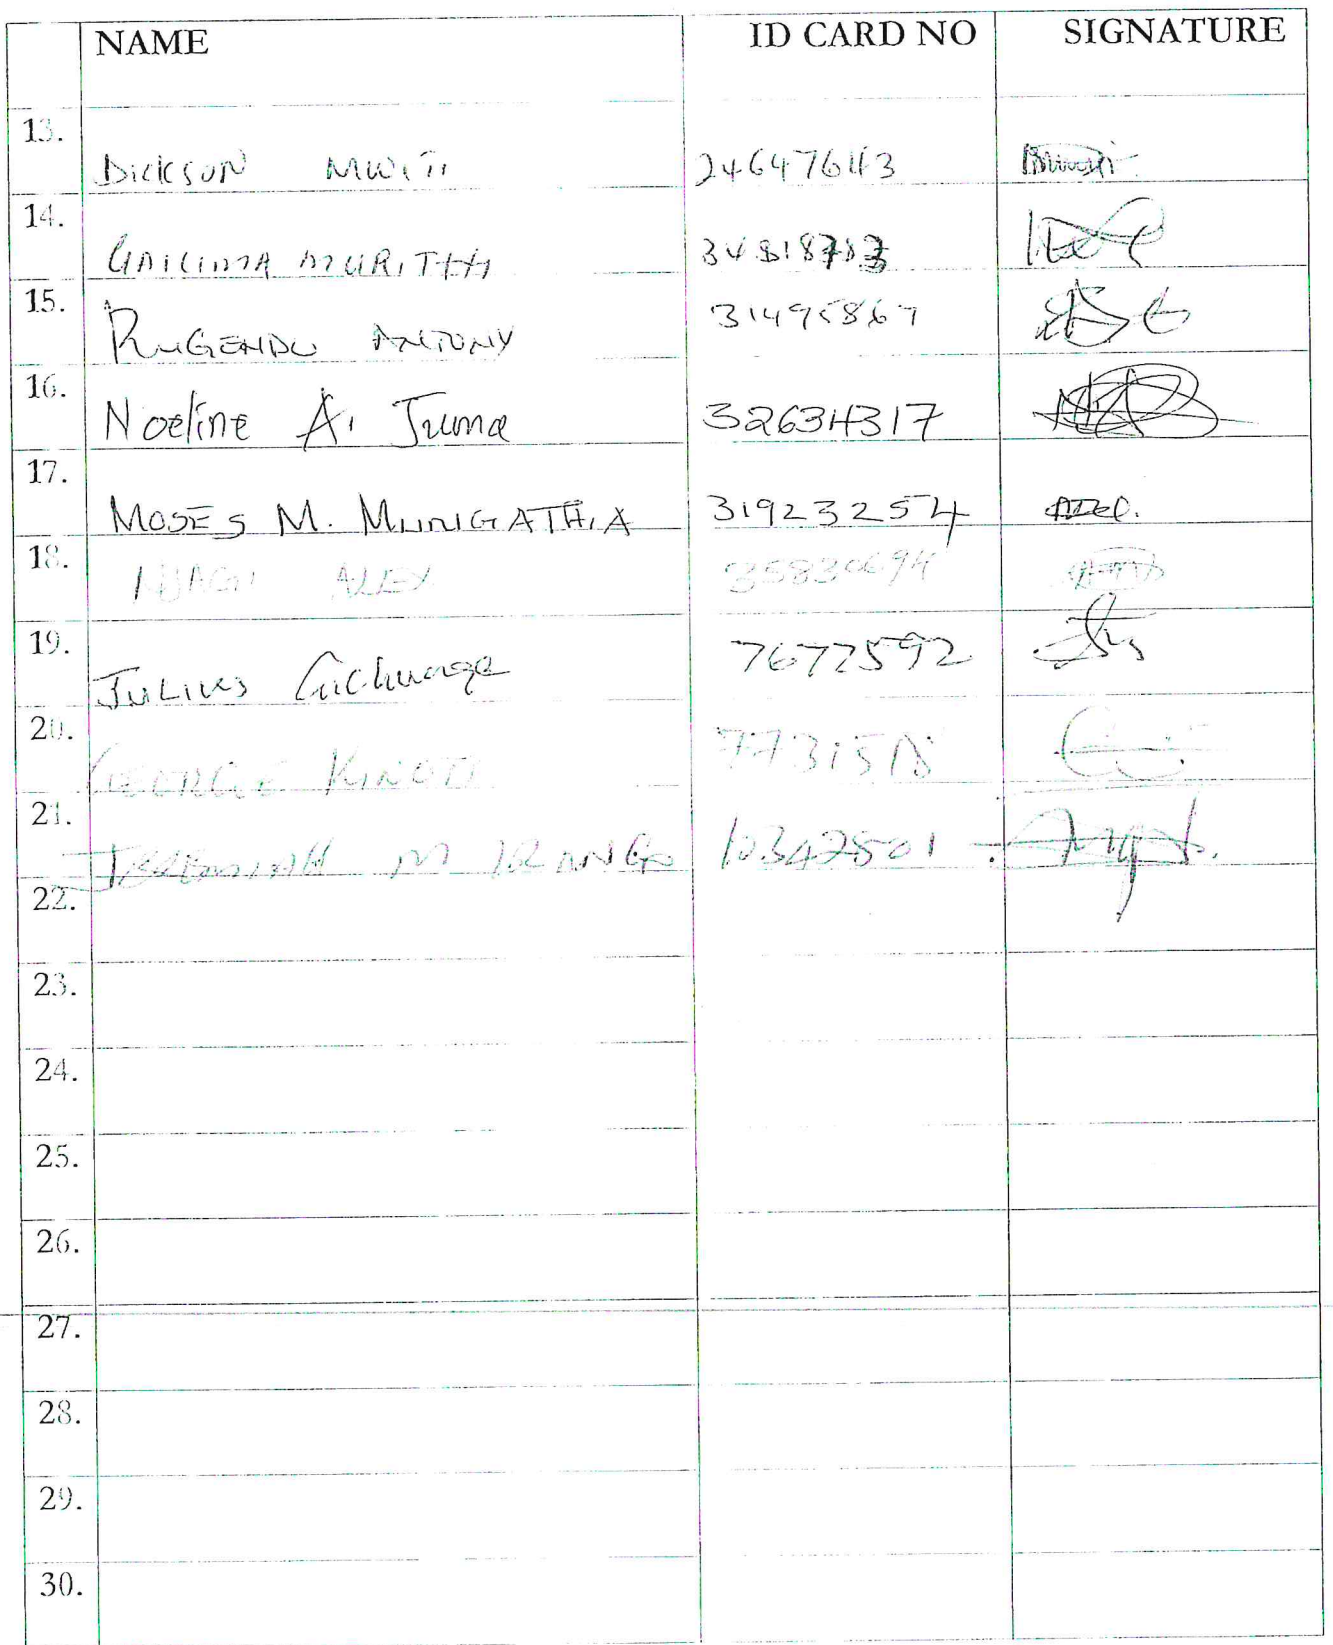 NAME ID CARD NO SIGNATURE
13. Dickson MWITI 24647643
14. GAICHMA MURITHI
15. RUGENDO ANTONY 31495867
16. Noeline A. Juma 32634317
17. MOSES M. MUNGATHIA 31923254
18. NJAGI ALEX 35830694
19. JULIUS Gichunge 7677592
20. GEORGE KINOTI
21. JEREMIAH M 10342501
22.
23.
24.
25.
26.
27.
28.
29.
30.